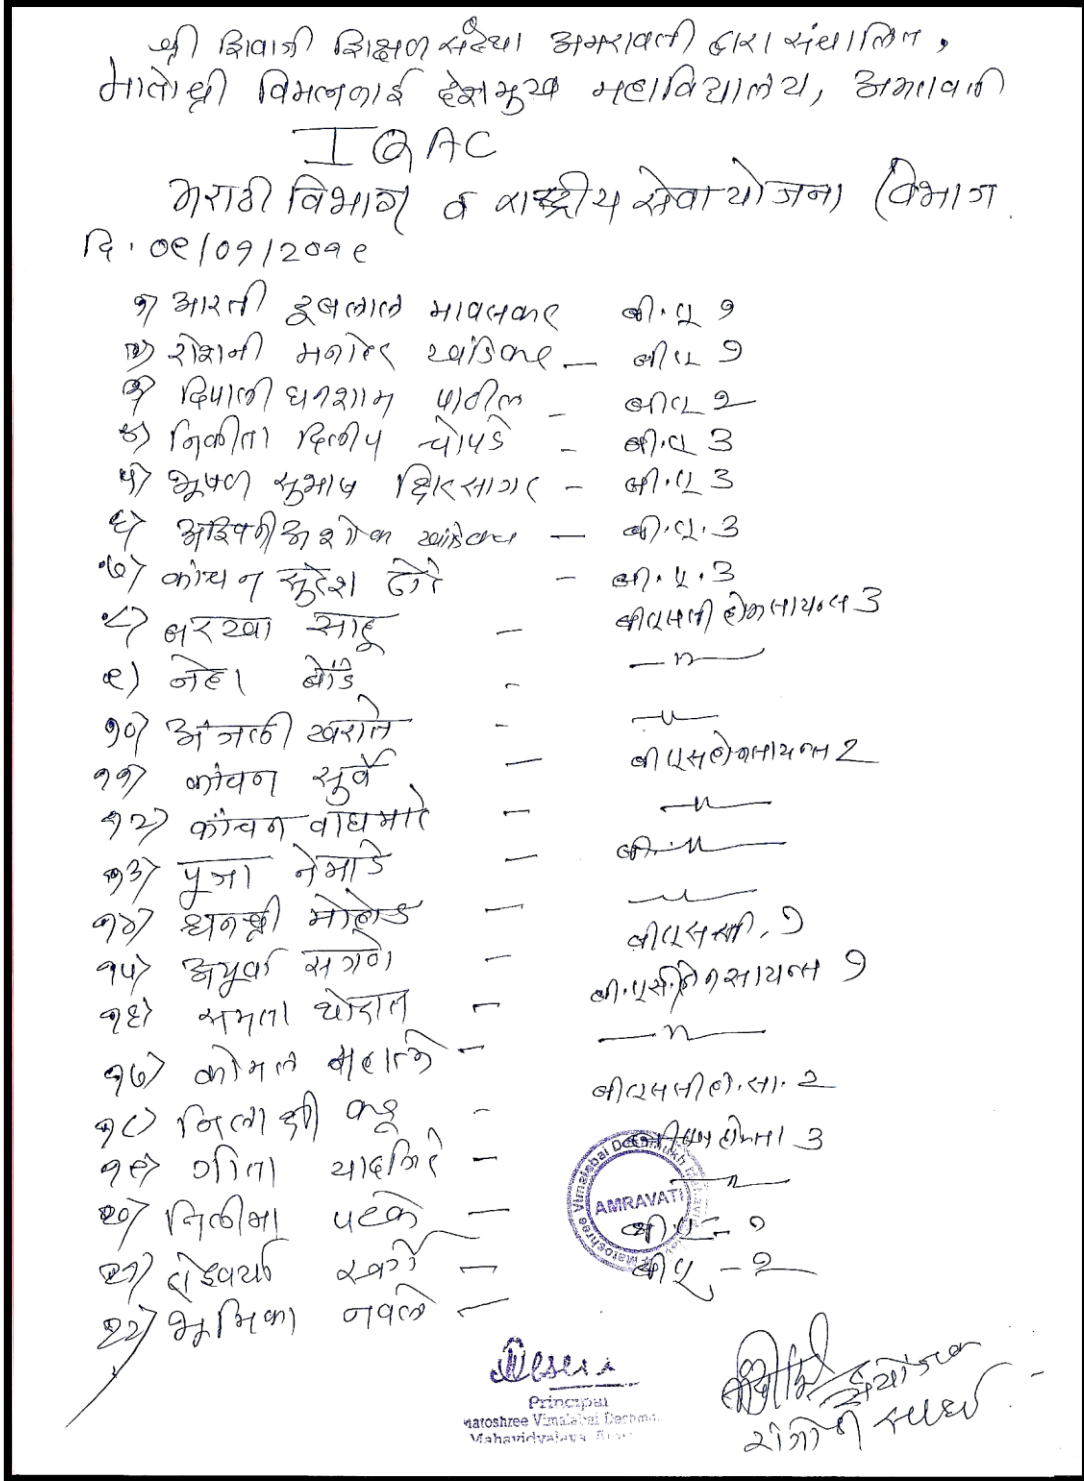 श्री शिवाजी शिक्षण संस्था अमरावती द्वारा संचालित,
मातोश्री विमलबाई देशमुख महाविद्यालय, अमरावती
IQAC
मराठी विभाग व राष्ट्रीय सेवा योजना विभाग
दि. ०९/०१/२०१९
१) आरती मावसकर बी.ए १
२) रोशनी मनोहर खांडेकर – बीए १
३) दिपाली घनशाम पाटील – बीए २
४) निकीता दिलीप चोपडे – बी.ए ३
५) भूषण सुभाष क्षिरसागर – बी.ए ३
६) अश्विनी अशोक खांडेकर – बी.ए. ३
७) कांचन सुरेश ढोरे – बी.ए.३
८) बरखा साहू – बीएससी होमसायन्स ३
९) नेहा बोंडे - —〃—
१०) अंजली खराते - —〃—
११) कांचन सुर्वे – बीएसहोमसायन्स २
१२) कांचन वाघमारे – —〃—
१३) पूजा नेमाडे – बी.—〃—
१४) धनश्री मोहोड – —〃—
१५) अपूर्वा सगणे – बीएससी. १
१६) समता थोरात – बी.एस.होमसायन्स १
१७) कोमल महाले – —〃—
१८) निलाक्षी कडू - बीएससी हो.सा. २
१९) गीता यादगिरे – होमसा ३
२०) निलीमा पटके – —〃—
२१) ऐश्वर्या – बी.ए – १
२२) भूमिका नवले – बीए – २
Matoshree Vimalabai Deshmukh Mahavidyalaya
AMRAVATI
Principal
Matoshree Vimalabai Deshmukh
Mahavidyalaya
संयोजक
रांगोळी स्पर्धा